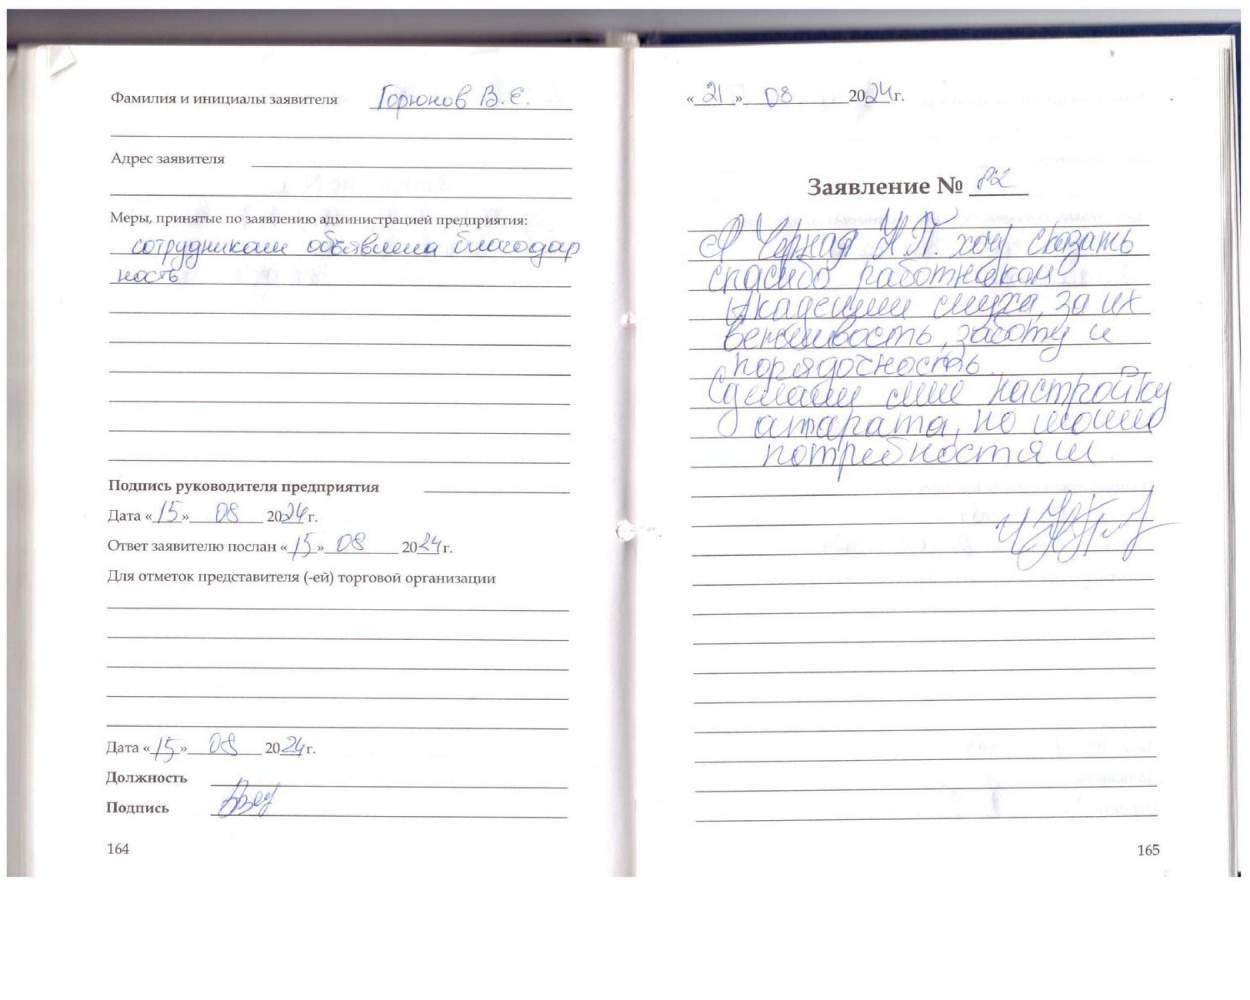 Фамилия и инициалы заявителя Горюнов В. Е.
Адрес заявителя
Меры, принятые по заявлению администрацией предприятия:
сотрудникам объявлена благодар
ность
Подпись руководителя предприятия
Дата «15» 08 2024 г.
Ответ заявителю послан «15» 08 2024 г.
Для отметок представителя (-ей) торговой организации
Дата «15» 08 2024 г.
Должность
Подпись
164
«21» 08 2024 г.
Заявление № 82
Я Н.П. хочу сказать
спасибо работникам
Академии слуха, за их
вежливость, заботу и
порядочность.
Сделали мне настройку
аппарата, по моим
потребностям
165